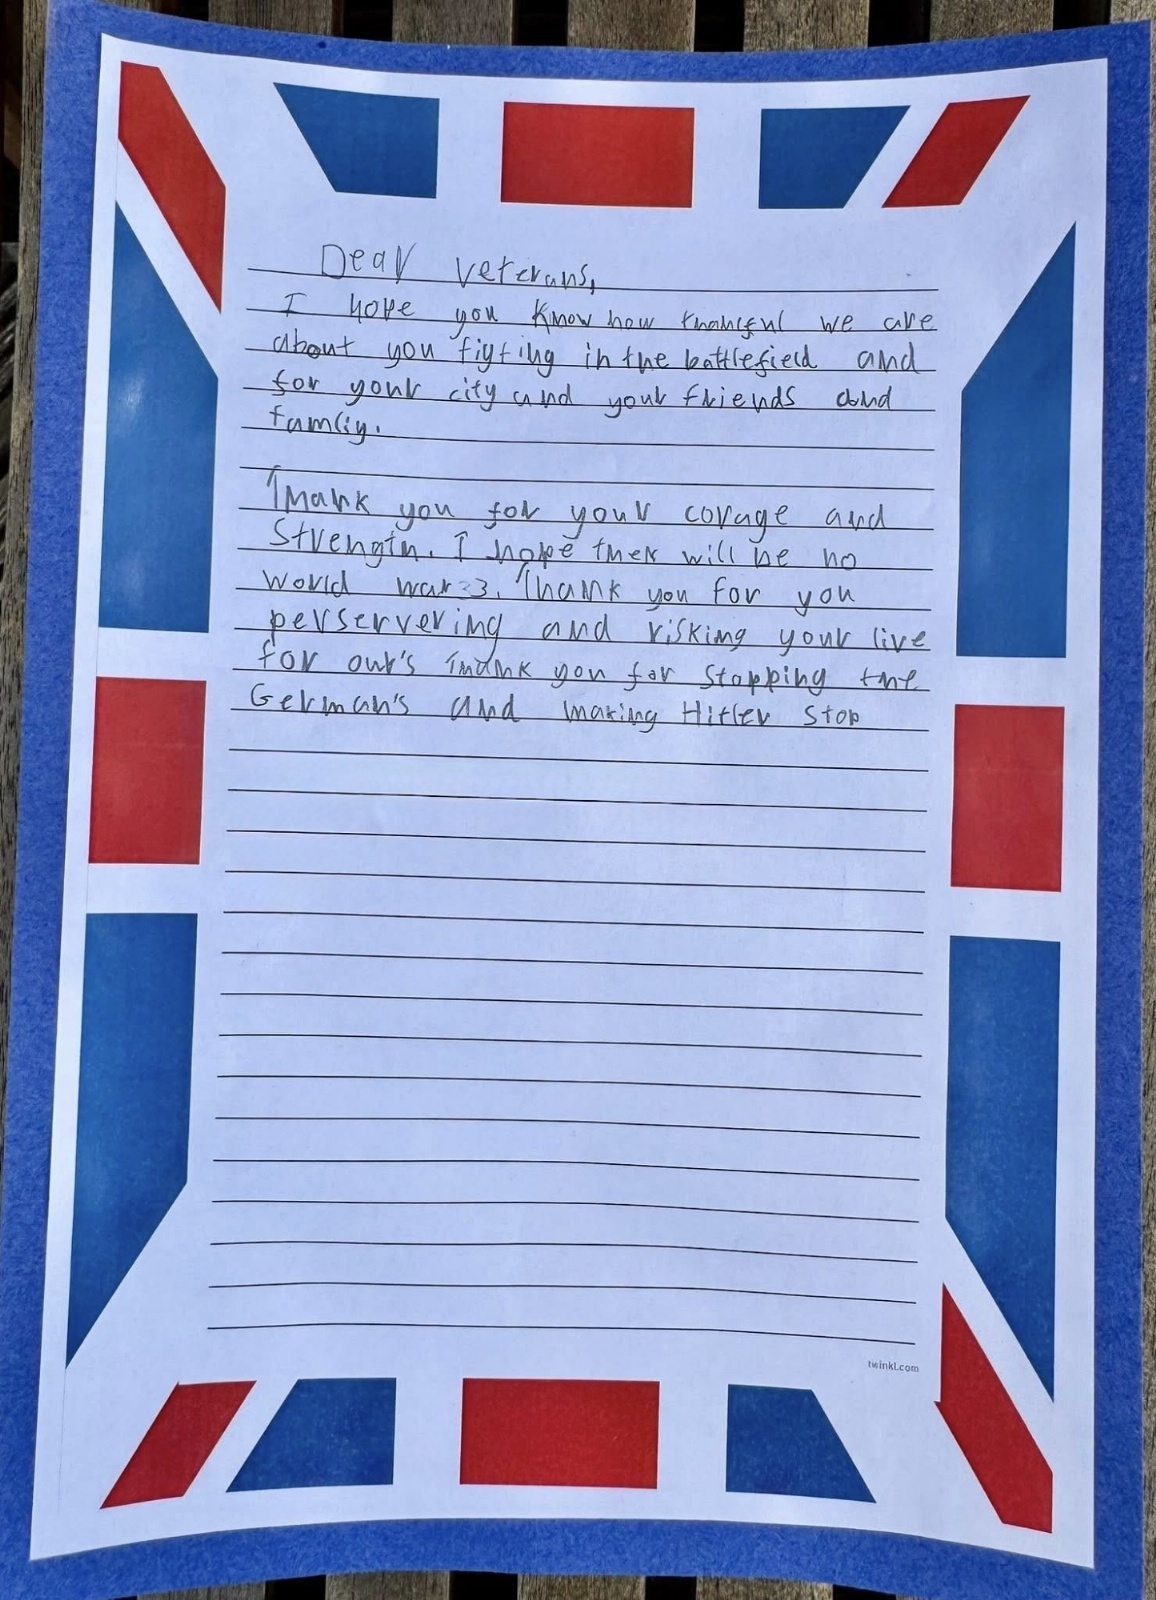 Dear veterans,
I hope you know how thankful we are
about you figting in the battlefield and
for your city and your friends and
famliy.
Thank you for your corage and
Strength. I hope ther will be no
world war 3. Thank you for you
perservering and risking your live
for our's Thank you for stopping the
German's and making Hitler stop
twinkl.com